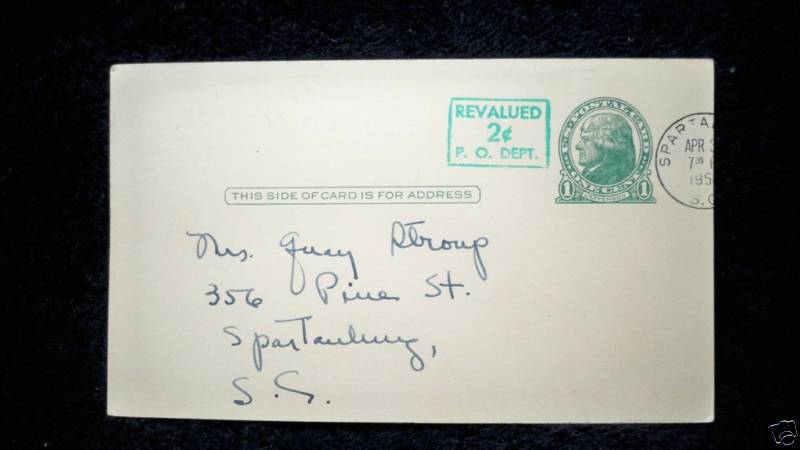 REVALUED
2¢
P. O. DEPT.
U.S. POSTAL CARD
1 ONE CENT 1
JEFFERSON
SPARTA
APR 3
7
195
S.C
THIS SIDE OF CARD IS FOR ADDRESS
Mrs. Guay Stroup
356 Pine St.
Spartanburg,
S.C.